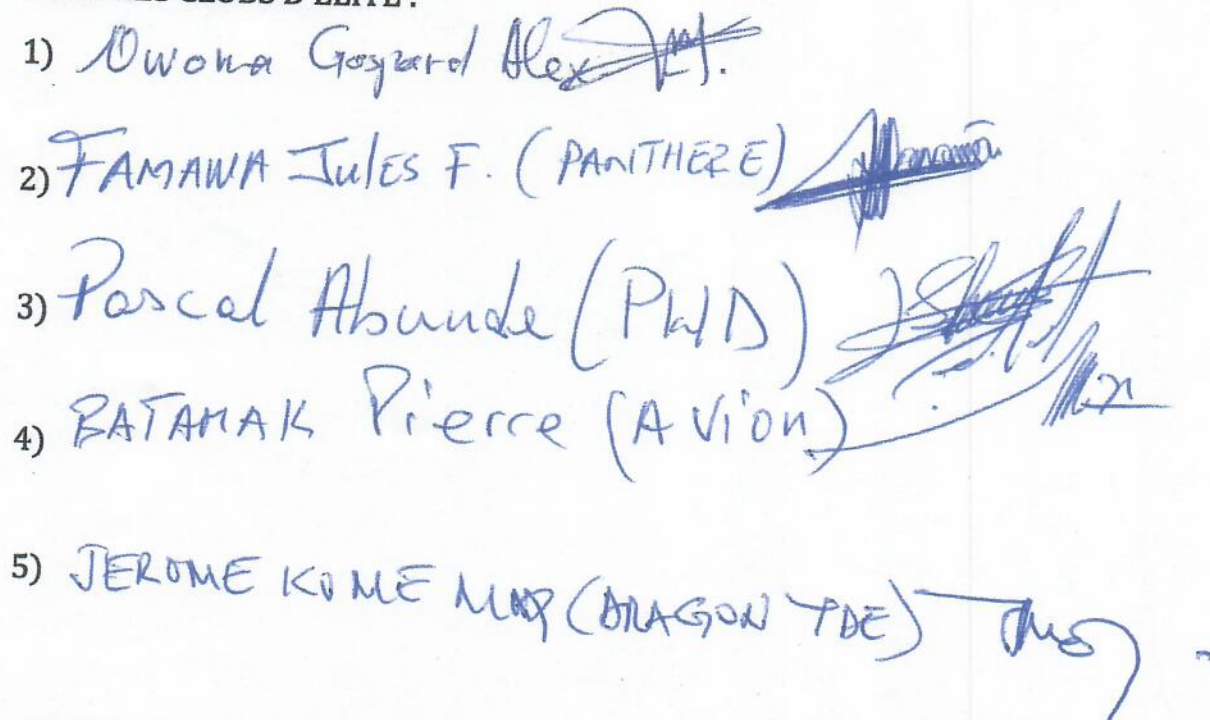 CLUBS D'ELITE :
1) Owona Gaspard Alex
2) FAMAWA Jules F. (PANTHERE)
3) Pascal Abunde (PWD)
4) BATAMAK Pierre (Avion)
5) JEROME KOME (DRAGON YDE)